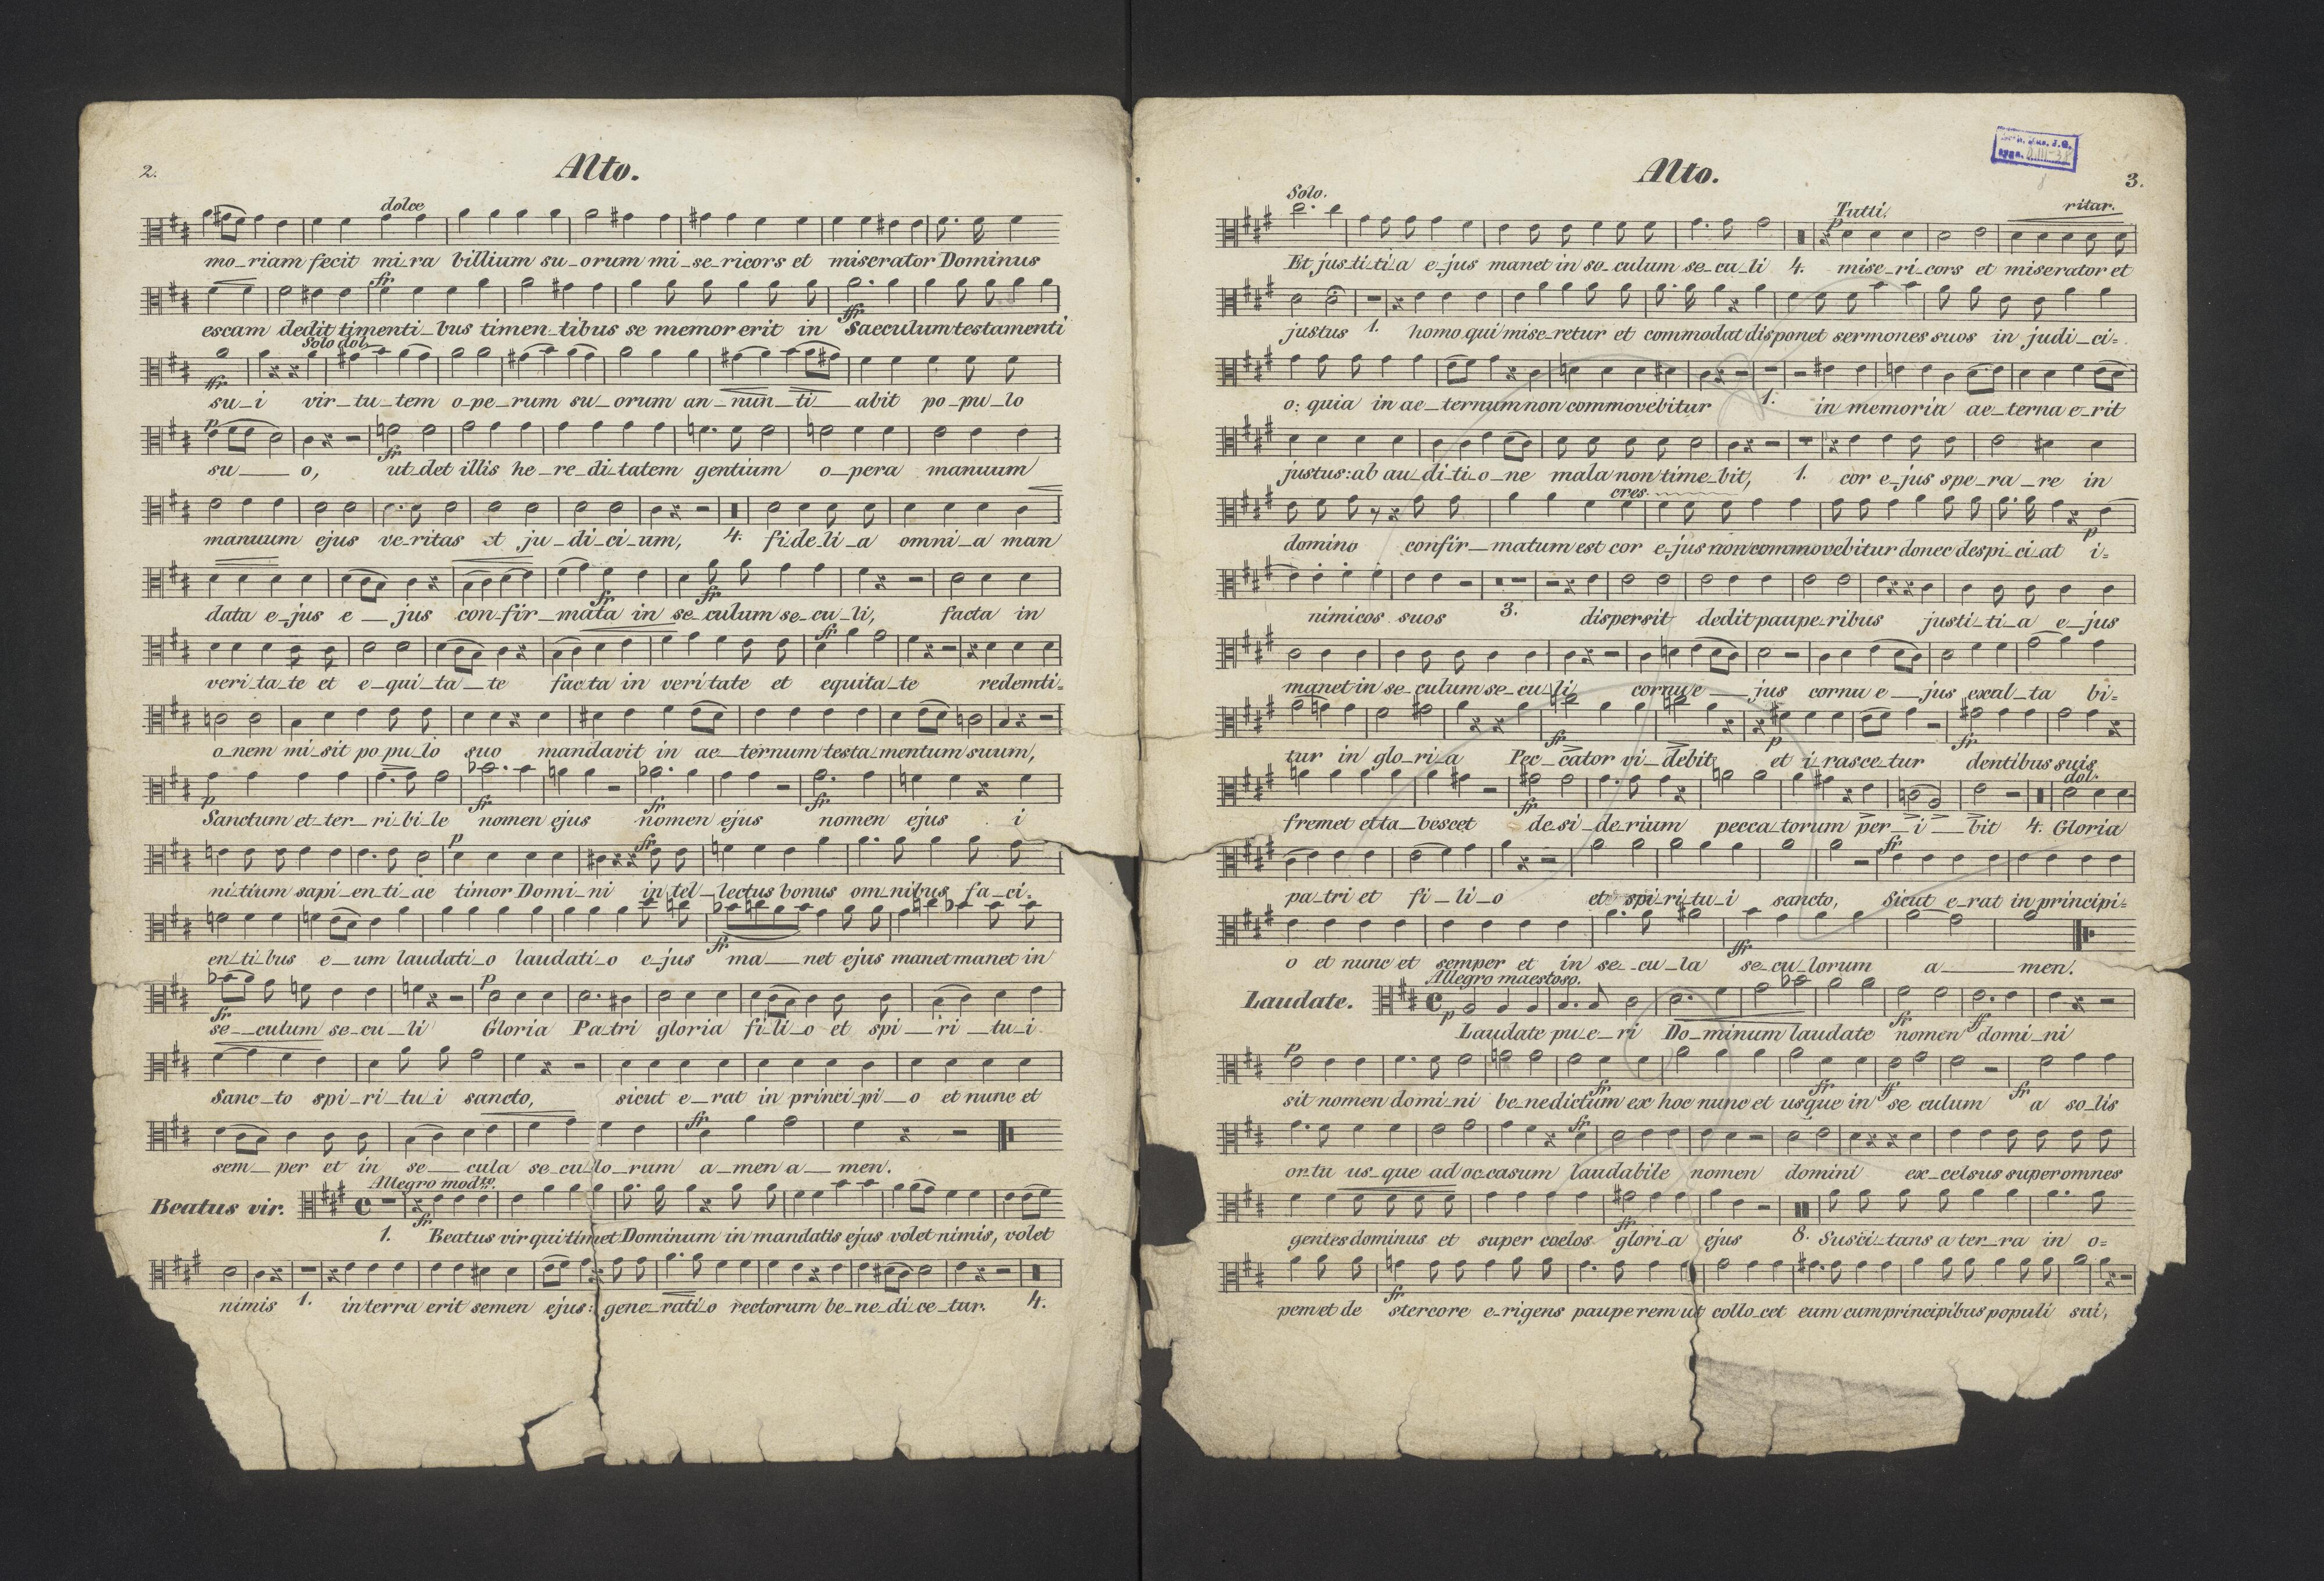 2.
Alto.
dolce
mo_riam fecit mi_ra billium su_orum mi_se_ricors et miserator Dominus
fr
ffr
escam dedit timenti_bus timen_tibus se memor erit in Saeculum testamenti
Solo dol.
ffr
su_i vir_tu_tem o_pe_rum su_orum an_nun_ti_abit po_pu_lo
p
fr
su_o, ut det illis he_re_di_tatem gentium o_pera manuum
manuum ejus ve_ritas et ju_di_ci_um, 4. fi_de_li_a omni_a man
fr fr
data e_jus e_jus con_fir_mata in se_culum se_cu_li, facta in
fr
veri_ta_te et e_qui_ta_te facta in veritate et equita_te redemti=
o_nem mi_sit po_pu_lo suo mandavit in ae_ternum testa_mentum suum,
p fr fr fr
Sanctum et_ter_ri_bi_le nomen ejus nomen ejus nomen ejus i
p fr
ni_tium sapi_en_ti_ae timor Domi_ni in_tel_lectus bonus om_nibus fa_ci_
fr
en_ti_bus e_um laudati_o laudati_o e_jus ma_net ejus manet manet in
p
fr
se_culum se_cu_li Gloria Pa_tri gloria fi_li_o et spi_ri_tu_i
Sanc_to spi_ri_tu_i sancto, sicut e_rat in princi_pi_o et nunc et
fr
sem_per et in se_cula se_cu_lo_rum a_men a_men.
Allegro mod.to
Beatus vir.
fr
1. Beatus vir qui timet Dominum in mandatis ejus volet nimis, volet
nimis 1. in terra erit semen ejus: gene_rati_o rectorum be_ne_di_ce_tur. 4.
Alto.
3.
Solo. Tutti. ritar.
p
Et jus_ti_ti_a e_jus manet in se_culum se_cu_li 4. mise_ri_cors et miserator et
justus 1. homo qui mise_retur et commodat disponet sermones suos in judi_ci=
o: quia in ae_ternum non commovebitur 1. in memoria ae_terna e_rit
justus: ab au_di_ti_o_ne mala non time_bit, 1. cor e_jus spe_ra_re in
cres.
p
domino confir_matum est cor e_jus non commovebitur donec despi_ci_at i=
nimicos suos 3. dispersit dedit paupe_ribus justi_ti_a e_jus
manet in se_culum se_cu_li cornu e_jus cornu e_jus exal_ta bi=
fr p fr
tur in glo_ri_a Pec_cator vi_debit et i_rasce_tur dentibus suis
dol.
fr
fremet et ta_bescet de_si_de_rium pecca_torum per_i_bit 4. Gloria
fr
pa_tri et fi_li_o et spi_ri_tu_i sancto, Sicut e_rat in principi=
ffr
o et nunc et semper et in se_cu_la se_cu_lorum a_men.
Allegro maestoso.
Laudate.
p fr ff
Laudate pu_e_ri Do_minum laudate nomen domi_ni
p
fr fr ff fr
sit nomen domi_ni be_nedictum ex hoc nunc et usque in se culum a so_lis
fr
or_tu us_que ad oc_casum laudabile nomen domini ex_celsus super omnes
fr
gentes dominus et super coelos glori_a ejus 8. Susci_tans a ter_ra in o=
fr
pem et de stercore e_rigens paupe rem ut collo_cet eum cum principibus populi sui,